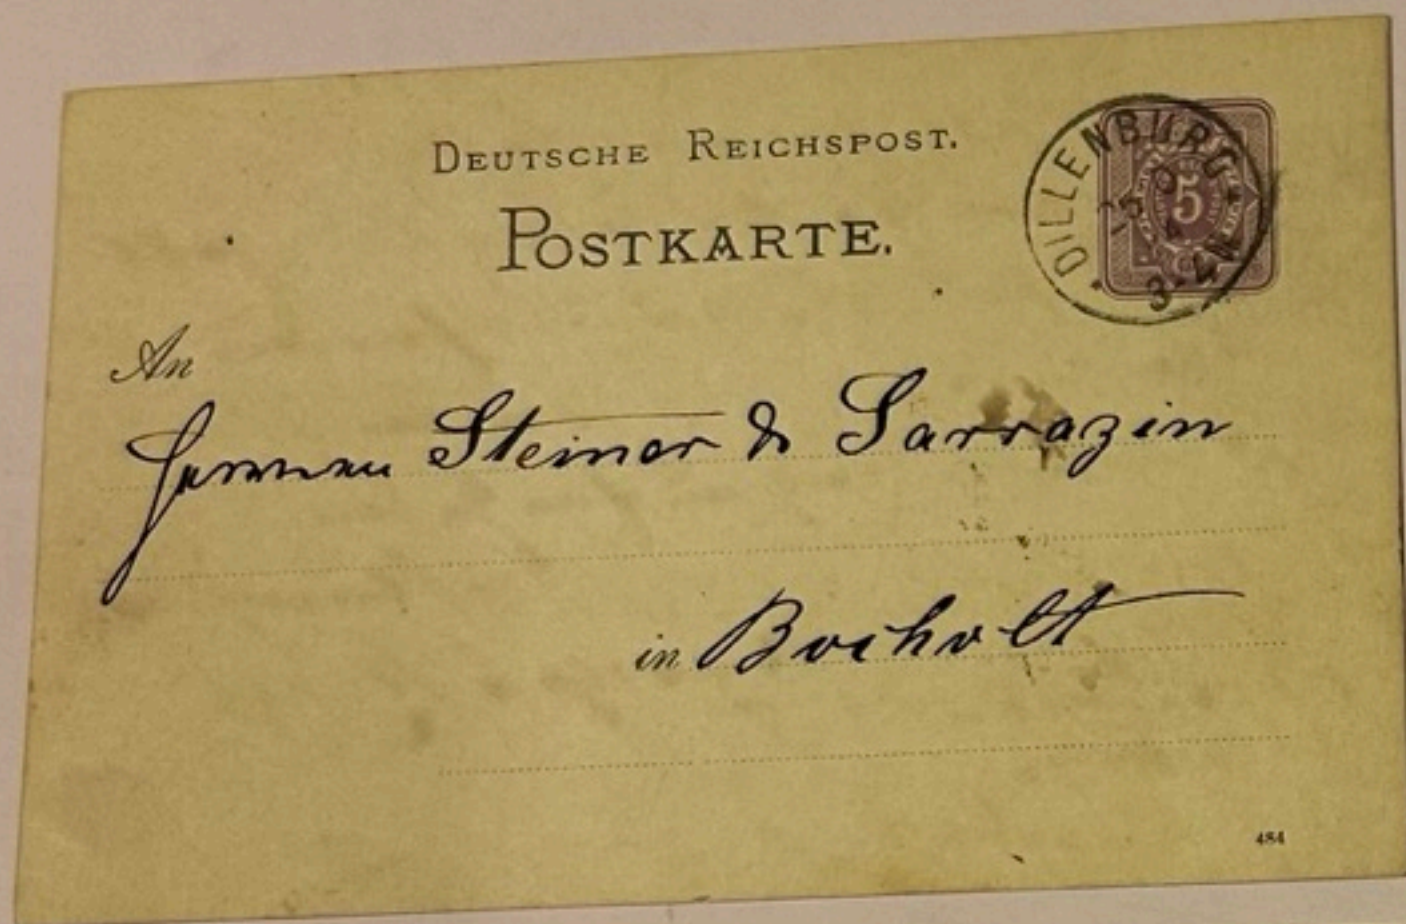 DEUTSCHE REICHSPOST.
POSTKARTE.
DILLENBURG
5
3-4N
An
Herren Steiner & Sarrazin
in Bocholt
484